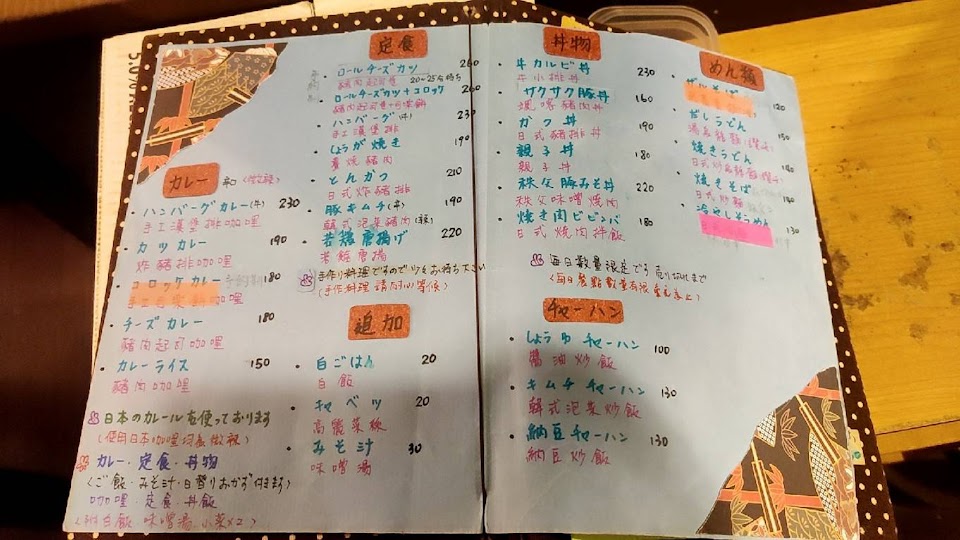 カレー
(微辣)
ハンバーグカレー(牛) 230
手工漢堡排咖哩
カツカレー 190
炸豬排咖哩
コロッケカレー 180
咖哩
チーズカレー 180
豬肉起司咖哩
カレーライス 150
豬肉咖哩
日本のカレールを使っております
(使用日本咖哩均為微辣)
カレー・定食・丼物
(ご飯・みそ汁・日替りおかず付きます)
咖哩・定食・丼飯
(附白飯 味噌湯 小菜×2)
定食
ロールチーズカツ 260
豬肉起司捲 20~25分待ち
ロールチーズカツ+コロッケ 260
ハンバーグ(牛) 230
手工漢堡排
しょうが焼き 190
薑燒豬肉
とんかつ 210
日式炸豬排
豚キムチ(辛) 190
韓式泡菜豬肉(辣)
若鶏唐揚げ 220
若雞唐揚
手作り料理でするのでツをお待ち下さい
(手作料理 請耐心等候)
追加
白ごはん 20
白飯
キャベツ 20
高麗菜絲
みそ汁 30
味噌湯
丼物
牛カルビ丼 230
牛小排丼
サクサク豚丼 160
豬肉丼
かつ丼 190
日式豬排丼
親子丼 180
親子丼
秩父豚みそ丼 220
秩父味噌燒肉
焼き肉ビビンバ 180
日式燒肉拌飯
毎日数量限定でする 売り切れまで
(每日餐點數量有限 賣完為止)
チャーハン
しょうゆチャーハン 100
醬油炒飯
キムチチャーハン 130
韓式泡菜炒飯
納豆チャーハン 130
納豆炒飯
めん類
ザルそば 120
だしうどん 130
湯烏龍麵
焼きうどん 140
日式炒烏龍麵
焼きそば 140
日式炒麵
冷やしそうめん 130